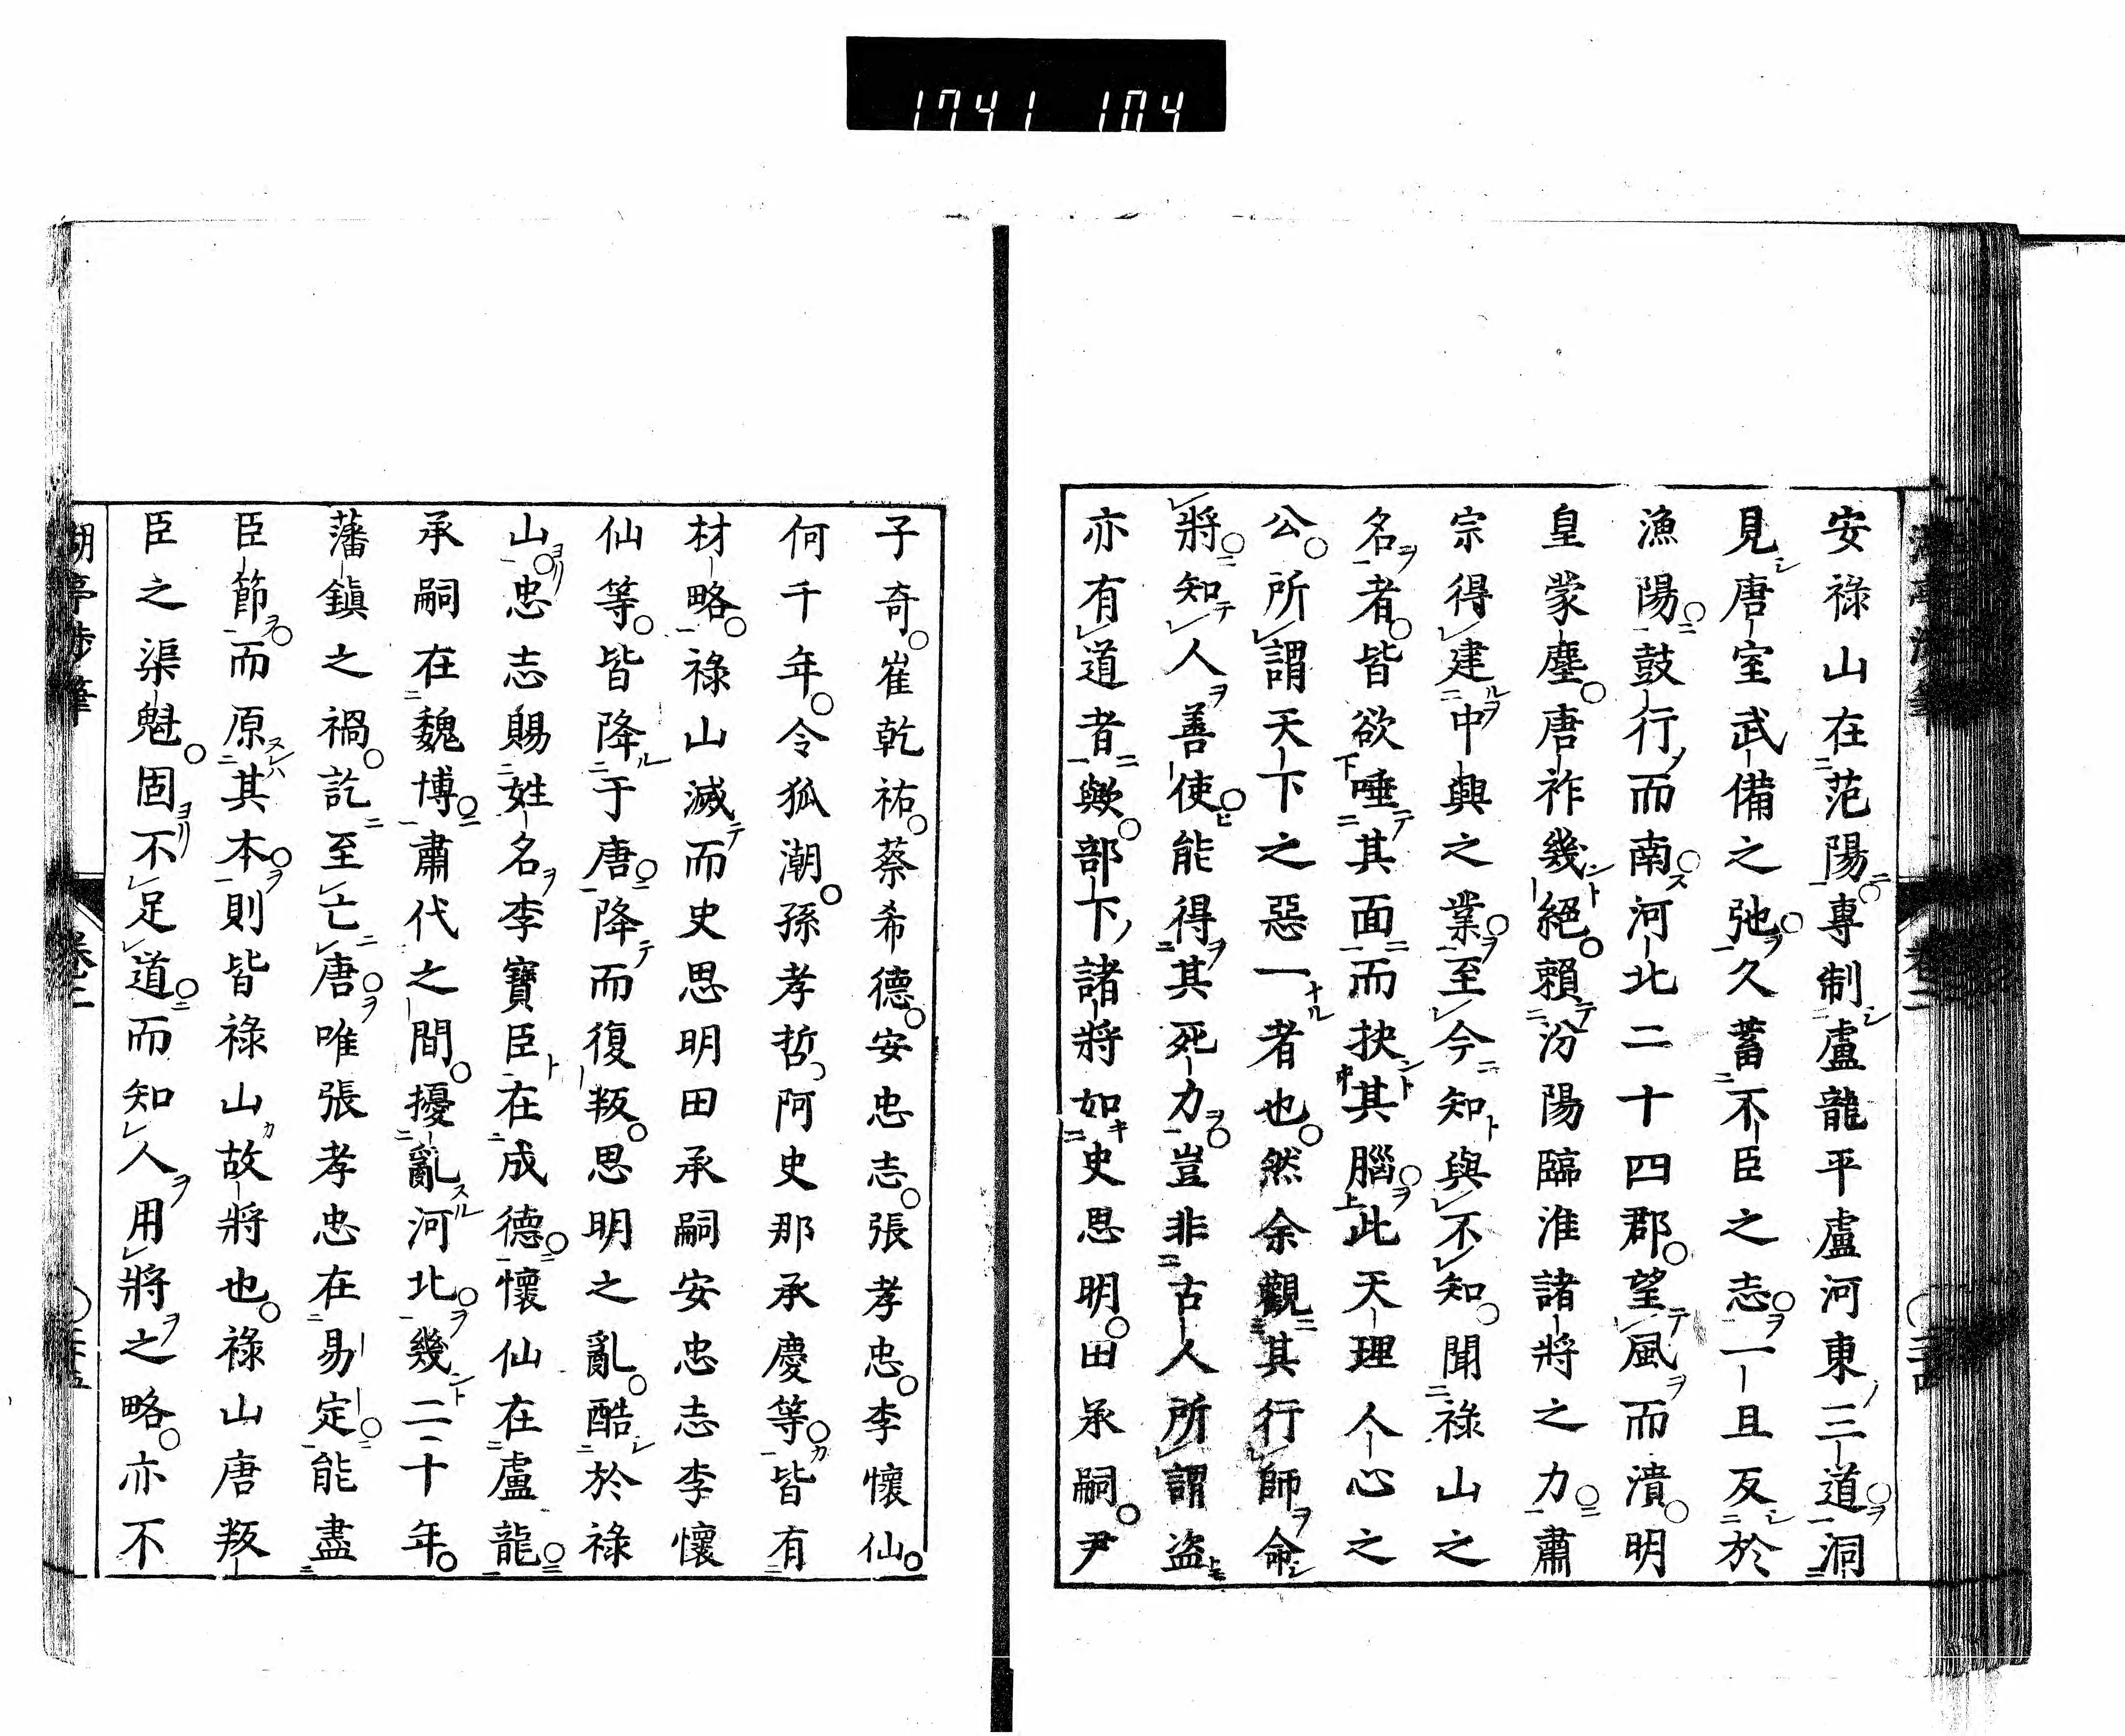 1741 104
安祿山在范陽專制盧龍平盧河東三道洞
見唐室武備之弛久蓄不臣之志一旦反於
漁陽鼓行而南河北二十四郡望風而潰明
皇蒙塵唐祚幾絕賴汾陽臨淮諸將之力肅
宗得建中興之業至今知與不知聞祿山之
名者皆欲唾其面而抉其腦此天理人心之
公所謂天下之惡一者也然余觀其行師命
將知人善使能得其死力豈非古人所謂盜
亦有道者歟部下諸將如史思明田承嗣尹
子奇崔乾祐蔡希德安忠志張孝忠李懷仙
何千年令狐潮孫孝哲阿史那承慶等皆有
材略祿山滅而史思明田承嗣安忠志李懷
仙等皆降于唐降而復叛思明之亂酷於祿
山忠志賜姓名李寶臣在成德懷仙在盧龍
承嗣在魏博肅代之間擾亂河北幾二十年
藩鎭之禍訖至亡唐唯張孝忠在易定能盡
臣節而原其本則皆祿山故將也祿山唐叛
臣之渠魁固不足道而知人用將之略亦不